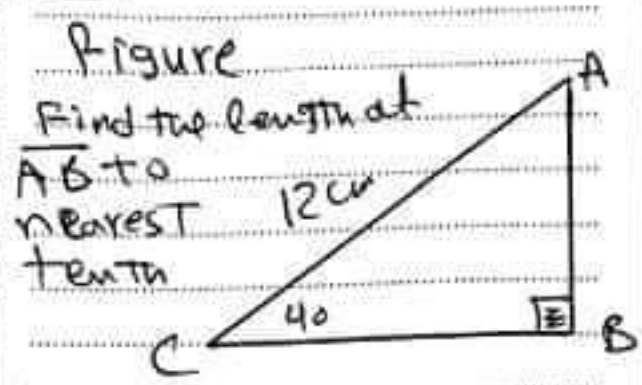 Figure
Find the length of
AB to
nearest
tenth
12 cm
40
A
B
C